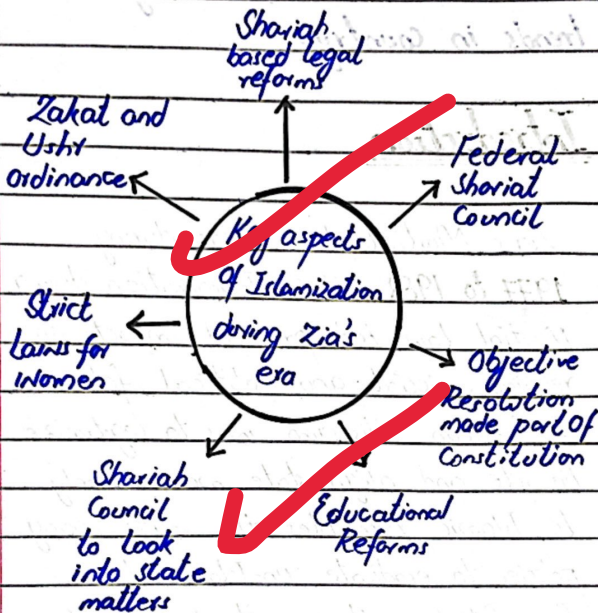 Shariah
based legal
reforms
Zakat and
Ushr
Ordinance
Federal
Shariat
Council
Key aspects
of Islamization
during Zia's
era
Strict
Laws for
Women
Objective
Resolution
made part of
Constitution
Shariah
Council
to look
into state
matters
Educational
Reforms